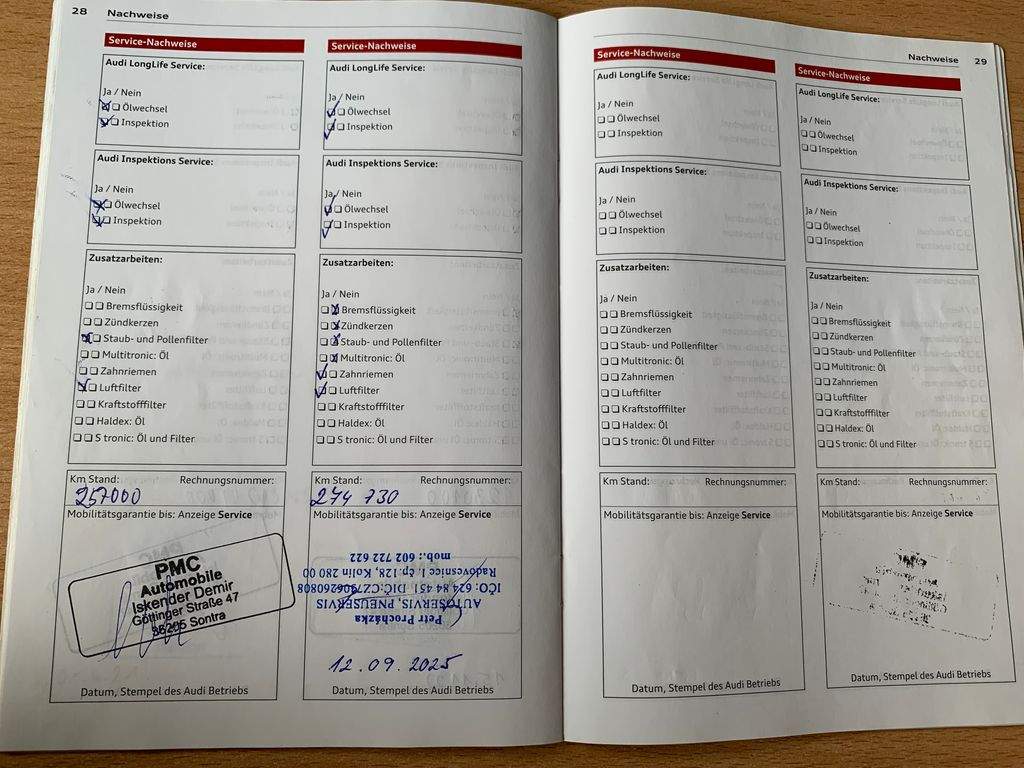 28 Nachweise
Service-Nachweise
Audi LongLife Service:
Ja / Nein
Ölwechsel
Inspektion
Audi Inspektions Service:
Ja / Nein
Ölwechsel
Inspektion
Zusatzarbeiten:
Ja / Nein
Bremsflüssigkeit
Zündkerzen
Staub- und Pollenfilter
Multitronic: Öl
Zahnriemen
Luftfilter
Kraftstofffilter
Haldex: Öl
S tronic: Öl und Filter
Km Stand: Rechnungsnummer:
257000
Mobilitätsgarantie bis: Anzeige Service
PMC
Automobile
Iskender Demir
Göttinger Straße 47
36205 Sontra
Datum, Stempel des Audi Betriebs
Service-Nachweise
Audi LongLife Service:
Ja / Nein
Ölwechsel
Inspektion
Audi Inspektions Service:
Ja / Nein
Ölwechsel
Inspektion
Zusatzarbeiten:
Ja / Nein
Bremsflüssigkeit
Zündkerzen
Staub- und Pollenfilter
Multitronic: Öl
Zahnriemen
Luftfilter
Kraftstofffilter
Haldex: Öl
S tronic: Öl und Filter
Km Stand: Rechnungsnummer:
274 730
Mobilitätsgarantie bis: Anzeige Service
Petr Procházka
AUTOSERVIS, PNEUSERVIS
IČO: 624 84 451 DIČ:CZ7906260808
Radovesnice I. čp.128, Kolín 280 00
mob.: 602 722 622
12.09.2025
Datum, Stempel des Audi Betriebs
Nachweise 29
Service-Nachweise
Audi LongLife Service:
Ja / Nein
Ölwechsel
Inspektion
Audi Inspektions Service:
Ja / Nein
Ölwechsel
Inspektion
Zusatzarbeiten:
Ja / Nein
Bremsflüssigkeit
Zündkerzen
Staub- und Pollenfilter
Multitronic: Öl
Zahnriemen
Luftfilter
Kraftstofffilter
Haldex: Öl
S tronic: Öl und Filter
Km Stand: Rechnungsnummer:
Mobilitätsgarantie bis: Anzeige Service
Datum, Stempel des Audi Betriebs
Service-Nachweise
Audi LongLife Service:
Ja / Nein
Ölwechsel
Inspektion
Audi Inspektions Service:
Ja / Nein
Ölwechsel
Inspektion
Zusatzarbeiten:
Ja / Nein
Bremsflüssigkeit
Zündkerzen
Staub- und Pollenfilter
Multitronic: Öl
Zahnriemen
Luftfilter
Kraftstofffilter
Haldex: Öl
S tronic: Öl und Filter
Km Stand: Rechnungsnummer:
Mobilitätsgarantie bis: Anzeige Service
Datum, Stempel des Audi Betriebs